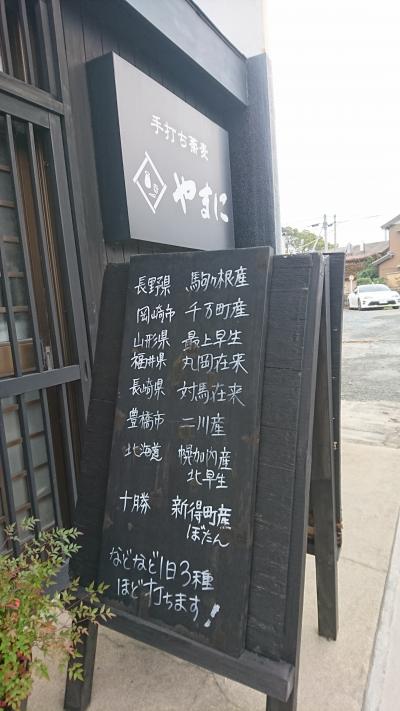 手打ち蕎麦
やまに
長野県 駒ヶ根産
岡崎市 千万町産
山形県 最上早生
福井県 丸岡在来
長崎県 対馬在来
豊橋市 二川産
北海道 幌加内産
北早生
十勝 新得町産
ぼたん
などなど1日3種
ほど打ちます!